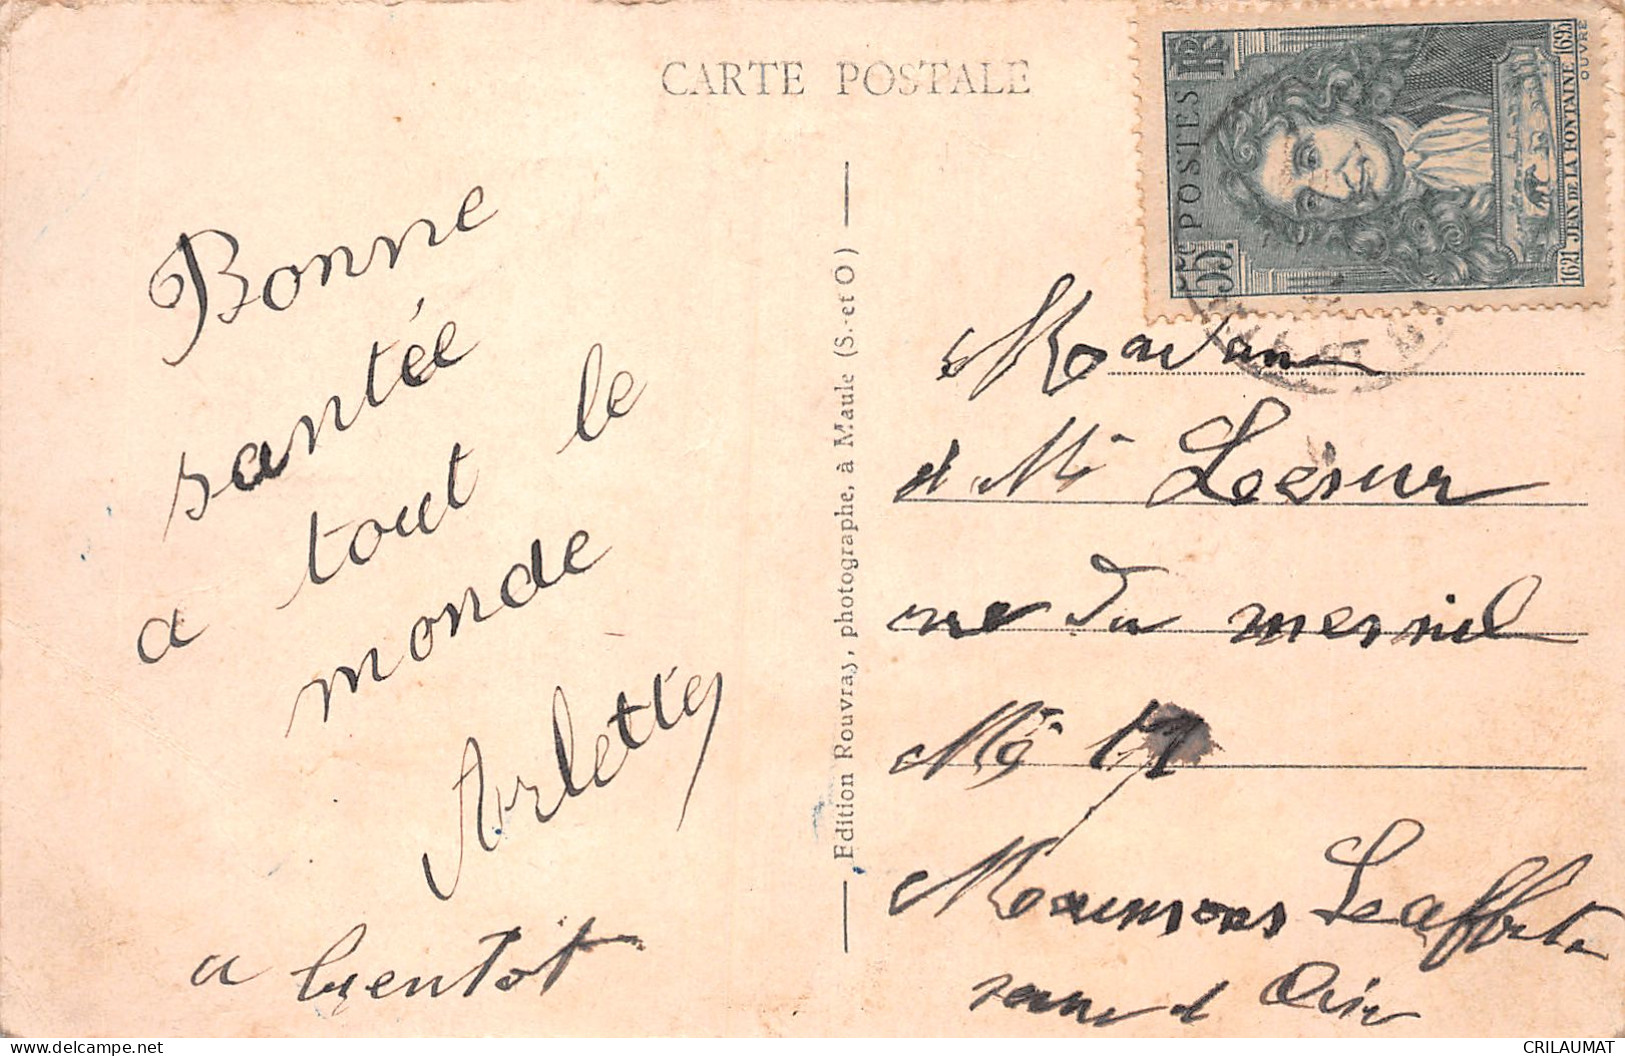 CARTE POSTALE
Bonne
santée
a tout le
monde
Arlette
a bientot
Edition Rouvras, photographe, à Maule (S.-et O)
POSTES
55c.
1621 JEAN DE LA FONTAINE 1695
OUVRÉ
Madame
et Mr Lesur
rue du mesnil
Maisons Laffitte
seine et Oise
delcampe.net
CRILAUMAT